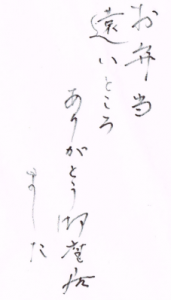 お弁当
遠いところ
ありがとう御座居
ました